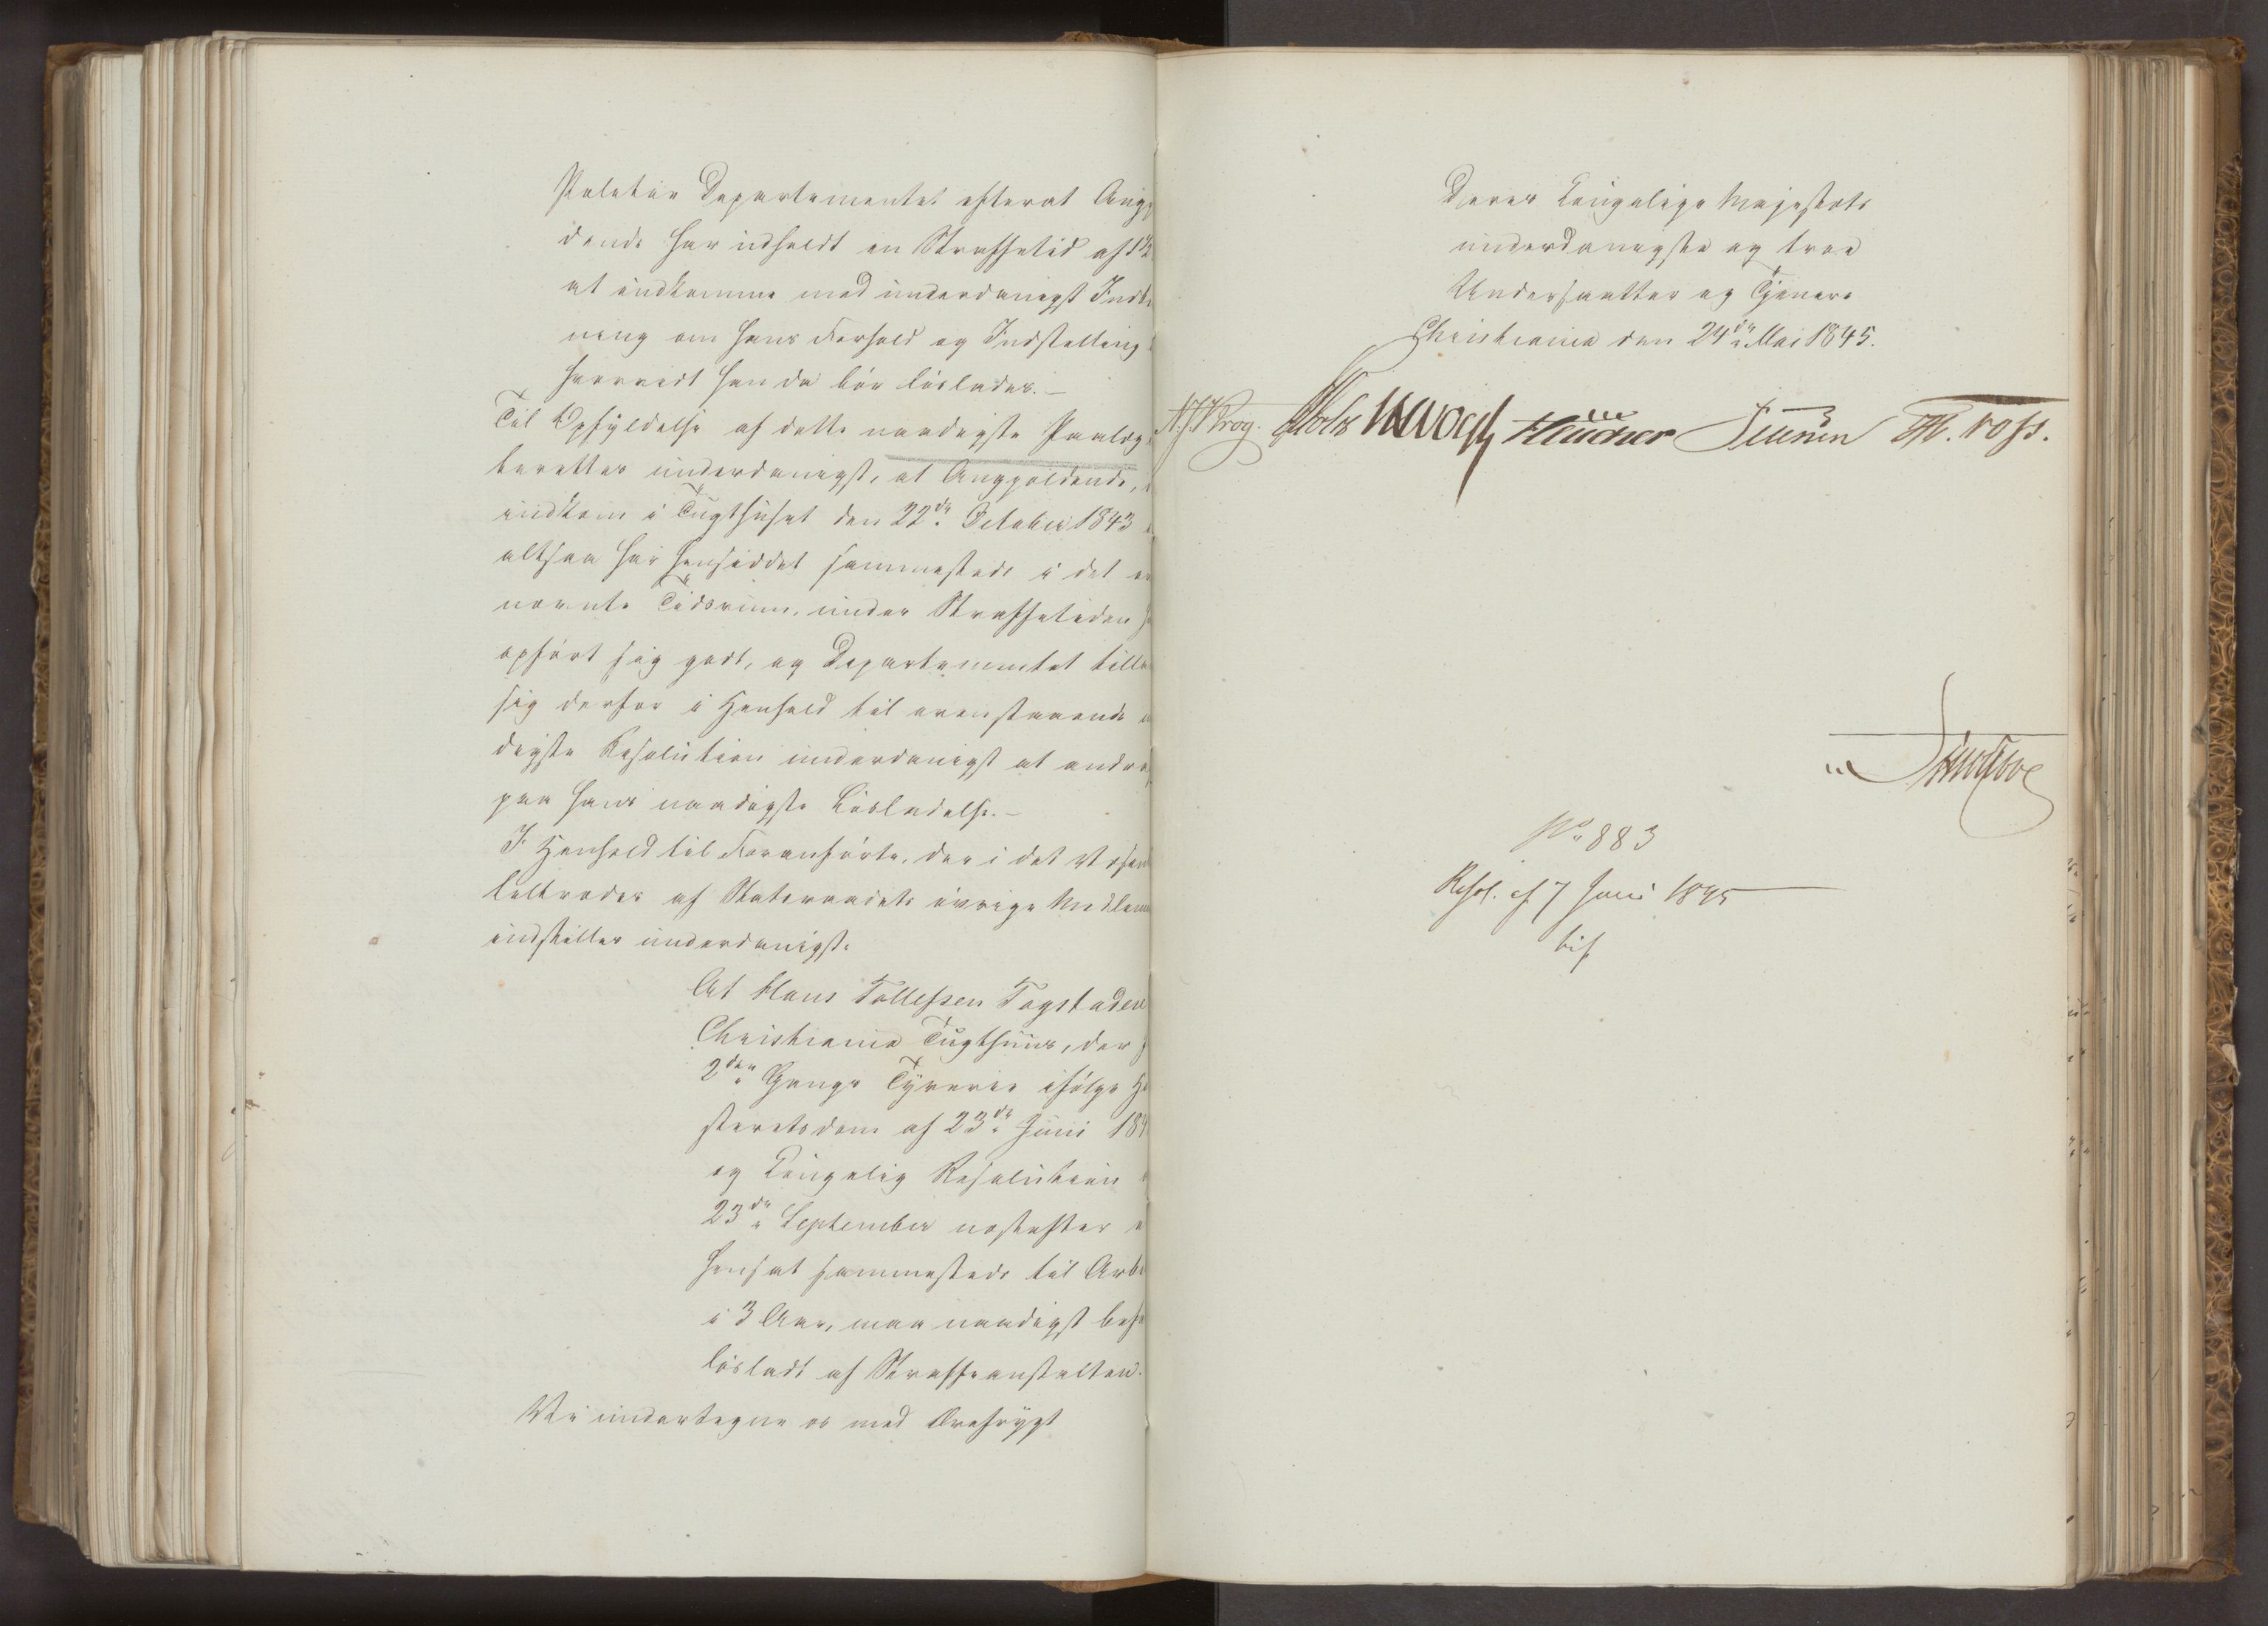 Politie Departementet efterat Angj
dende har udholdt en Straffetid af 1½
at indkomme med underdanigst Indbe
ning om hans Forhold og Indstilling
hvorvidt han da bör löslades.—
Til Opfyldelse af dette naadigste Paalæg
berettes underdanigst, at Angjældende,
indkom i Tugthuset den 22de October 1843
altsaa har hensiddet sammesteds i det
nævnte Tidsrum, under Straffetiden
opfört sig godt, og Departementet tilla
sig derfor i Henhold til ovenstaaende
digste Resolution underdanigst at andra
paa hans naadigste Lösladelse.—
I Henhold til Foranförte, der i det Væsen
tiltrædes af Statsraadets övrige Medlem
indstilles underdanigst:
At Hans Tollefsen Togstaden
Christiania Tugthuus, der
2den Gangs Tyverie ifölge Hö
steretsdom af 23de Juni 184
og Kongelig Resolution
23de September næstefter
hensat sammesteds til Arbe
i 3 Aar, maa naadigst befa
lösladt af Straffeanstalten.
Vi undertegne os med Ærefrygt
Deres Kongelige Majestæts
underdanigste og troe
Undersaatter og Tjenere
Christiania den 24de Mai 1845.
N. J. Krog. Holst Vogt
No 883
Resol. af 7 Juni 1845
bif